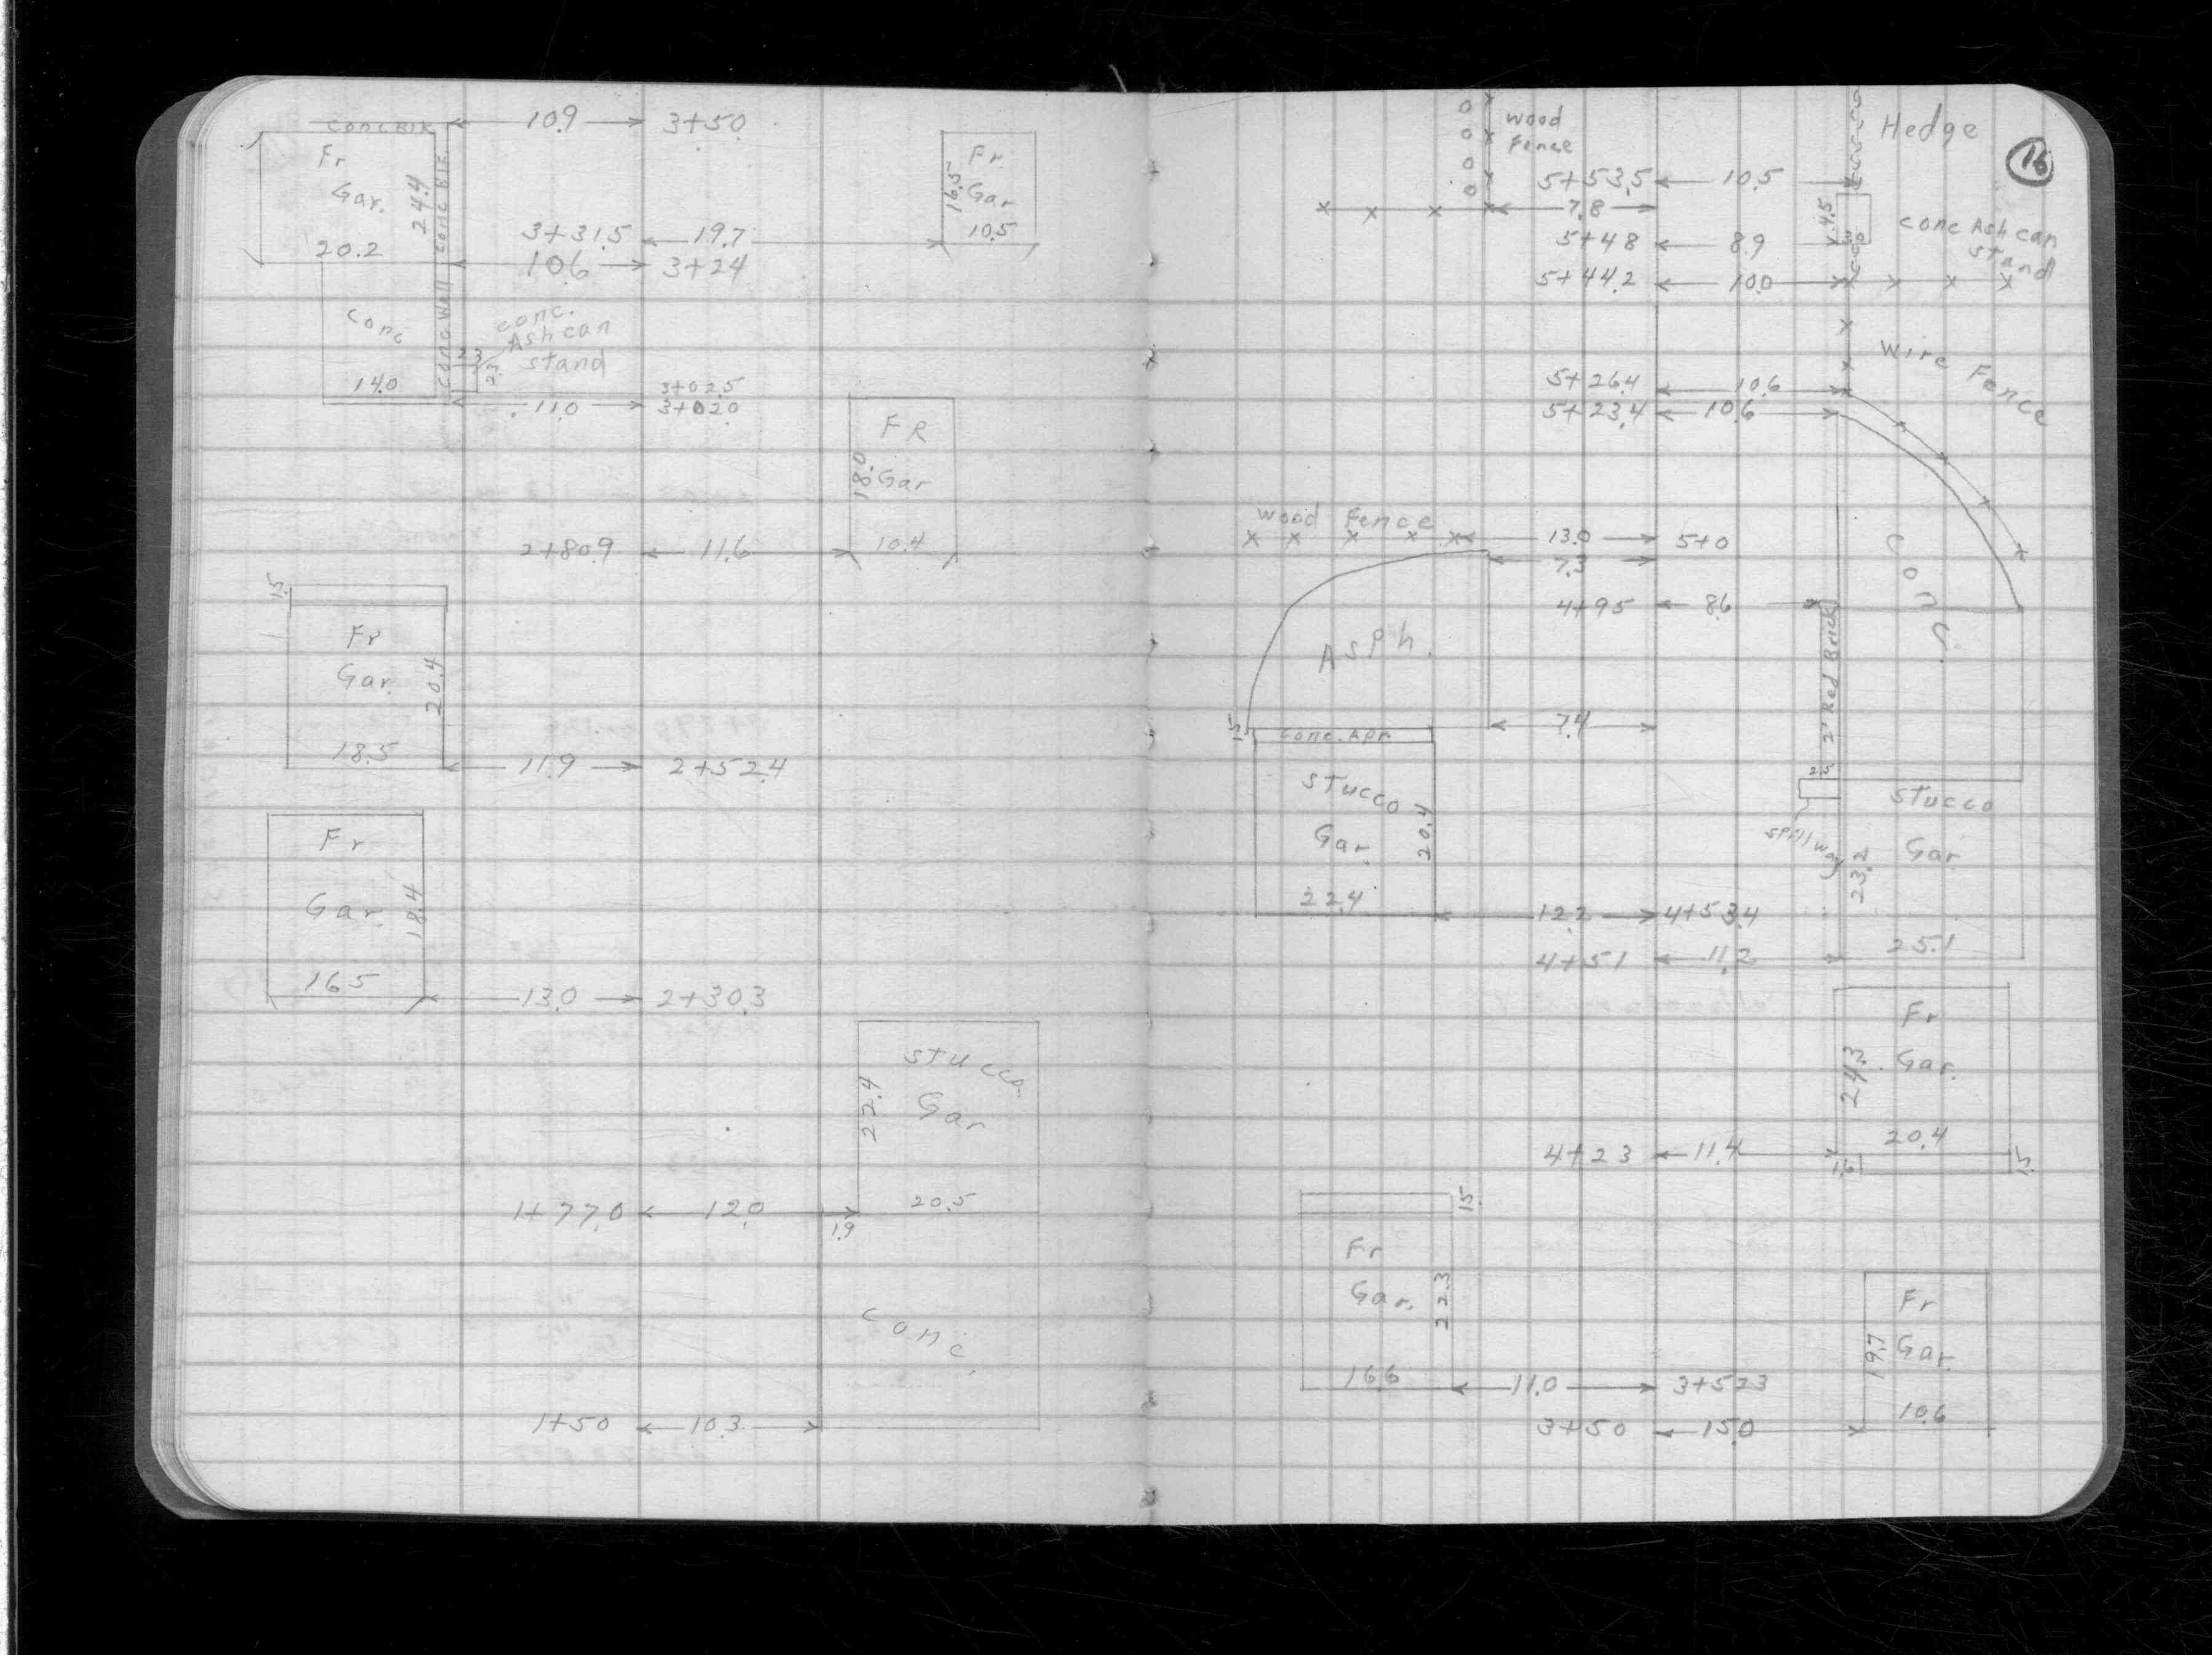 Conc Blk
10.9
3+50
Fr
Gar.
24.4
Conc Blk.
20.2
Fr.
Gar
16.5
10.5
3+31.5
19.7
10.6
3+24
Conc
Conc Wall
conc.
Ash can
stand
2.3
2.3
14.0
3+02.5
11.0
3+02.0
FR
Gar
18.0
2+80.9
11.6
10.4
1.5
Fr
Gar.
20.4
18.5
11.9
2+52.4
Fr
Gar.
18.4
16.5
13.0
2+30.3
stucco
Gar
22.4
1+77.0
12.0
20.5
1.9
Conc.
1+50
10.3
16
wood
Fence
Hedge
5+53.5
10.5
7.8
4.5
5+48
8.9
conc Ash can
stand
5+44.2
10.0
Wire Fence
5+26.4
10.6
5+23.4
10.6
Wood Fence
13.0
5+0
7.3
4+95
8.6
Conc.
Asph.
2' Red Brick
7.4
1.5
Conc. Apr.
2.5
Stucco
Gar.
20.4
22.4
Spillway
Stucco
Gar
23.2
12.2
4+53.4
4+51
11.2
25.1
Fr
Gar.
24.3
4+23
11.4
20.4
1.6
1.5
1.5
Fr
Gar.
22.3
16.6
11.0
3+52.3
Fr
Gar.
19.7
3+50
15.0
10.6